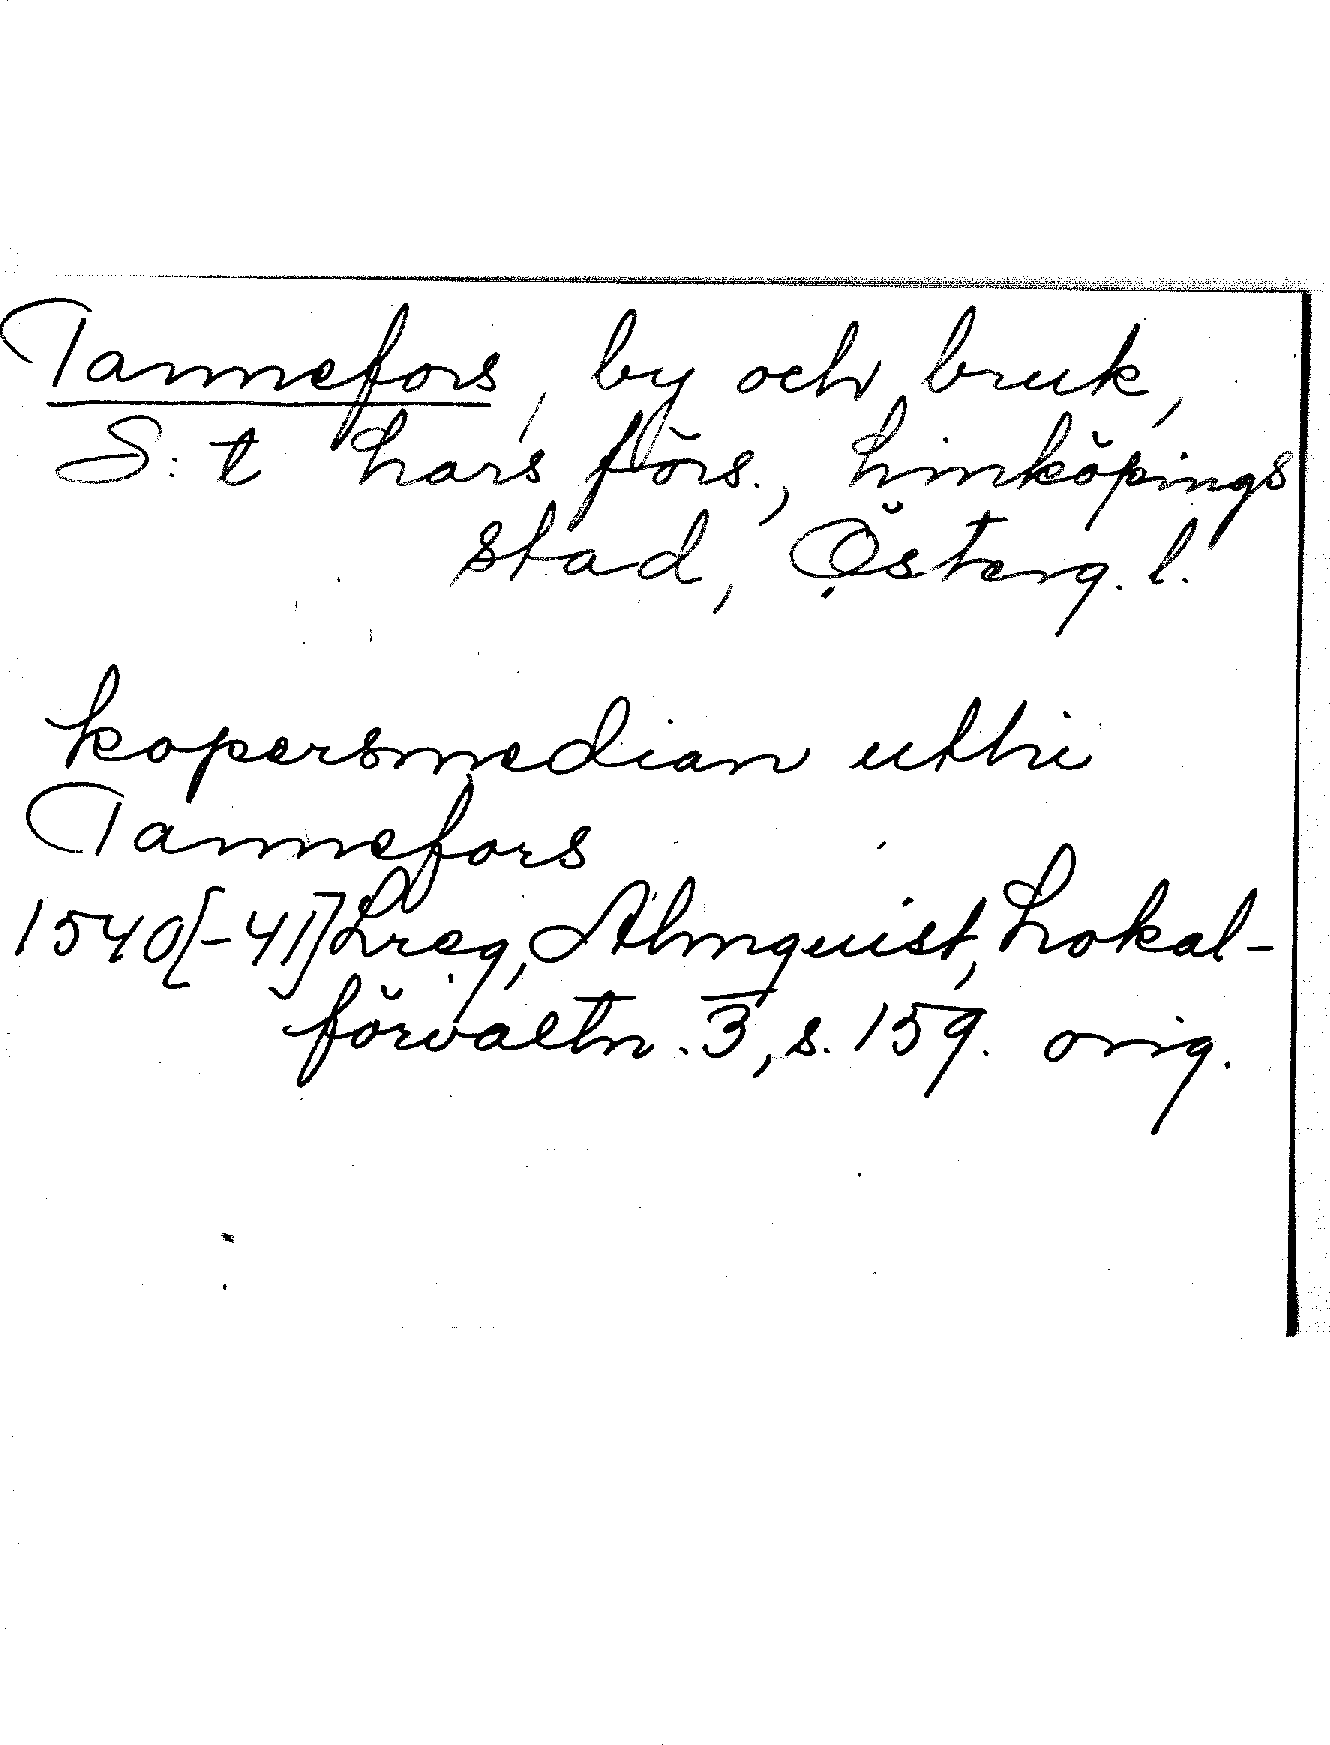 Tannefors, by och bruk,
S:t Lars förs., Linköpings
stad, Österg. l.
kopersmedian uthi
Tannefors
1540[-41] Lreg, Almquist, Lokal-
förvaltn. 3, s. 159. orig.